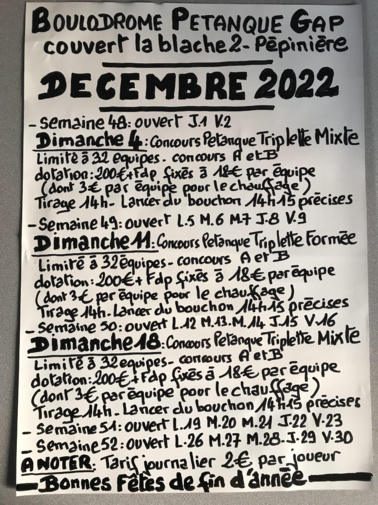 BOULODROME PETANQUE GAP
couvert la blache 2 - Pépinière
DECEMBRE 2022
- Semaine 48: ouvert J.1 V.2
Dimanche 4: Concours Petanque Triplette Mixte
Limité à 32 equipes - concours A et B
dotation: 200€ + Fdp fixés à 18€ par équipe
(dont 3€ par équipe pour le chauffage)
Tirage 14h - Lancer du bouchon 14h15 précises
- Semaine 49: ouvert L.5 M.6 M.7 J.8 V.9
Dimanche 11: Concours Petanque Triplette Formée
Limité à 32 équipes - concours A et B
dotation: 200€ + Fdp fixés à 18€ par équipe
(dont 3€ par équipe pour le chauffage)
Tirage 14h - Lancer du bouchon 14h15 précises
- Semaine 50: ouvert L.12 M.13 M.14 J.15 V.16
Dimanche 18: Concours Petanque Triplette Mixte
Limité à 32 equipes - concours A et B
dotation: 200€ + Fdp fixés à 18€ par équipe
(dont 3€ par équipe pour le chauffage)
Tirage 14h - Lancer du bouchon 14h15 précises
- Semaine 51: ouvert L.19 M.20 M.21 J.22 V.23
- Semaine 52: ouvert L.26 M.27 M.28 J.29 V.30
A NOTER: Tarif journalier 2€ par joueur
Bonnes Fêtes de fin d'année